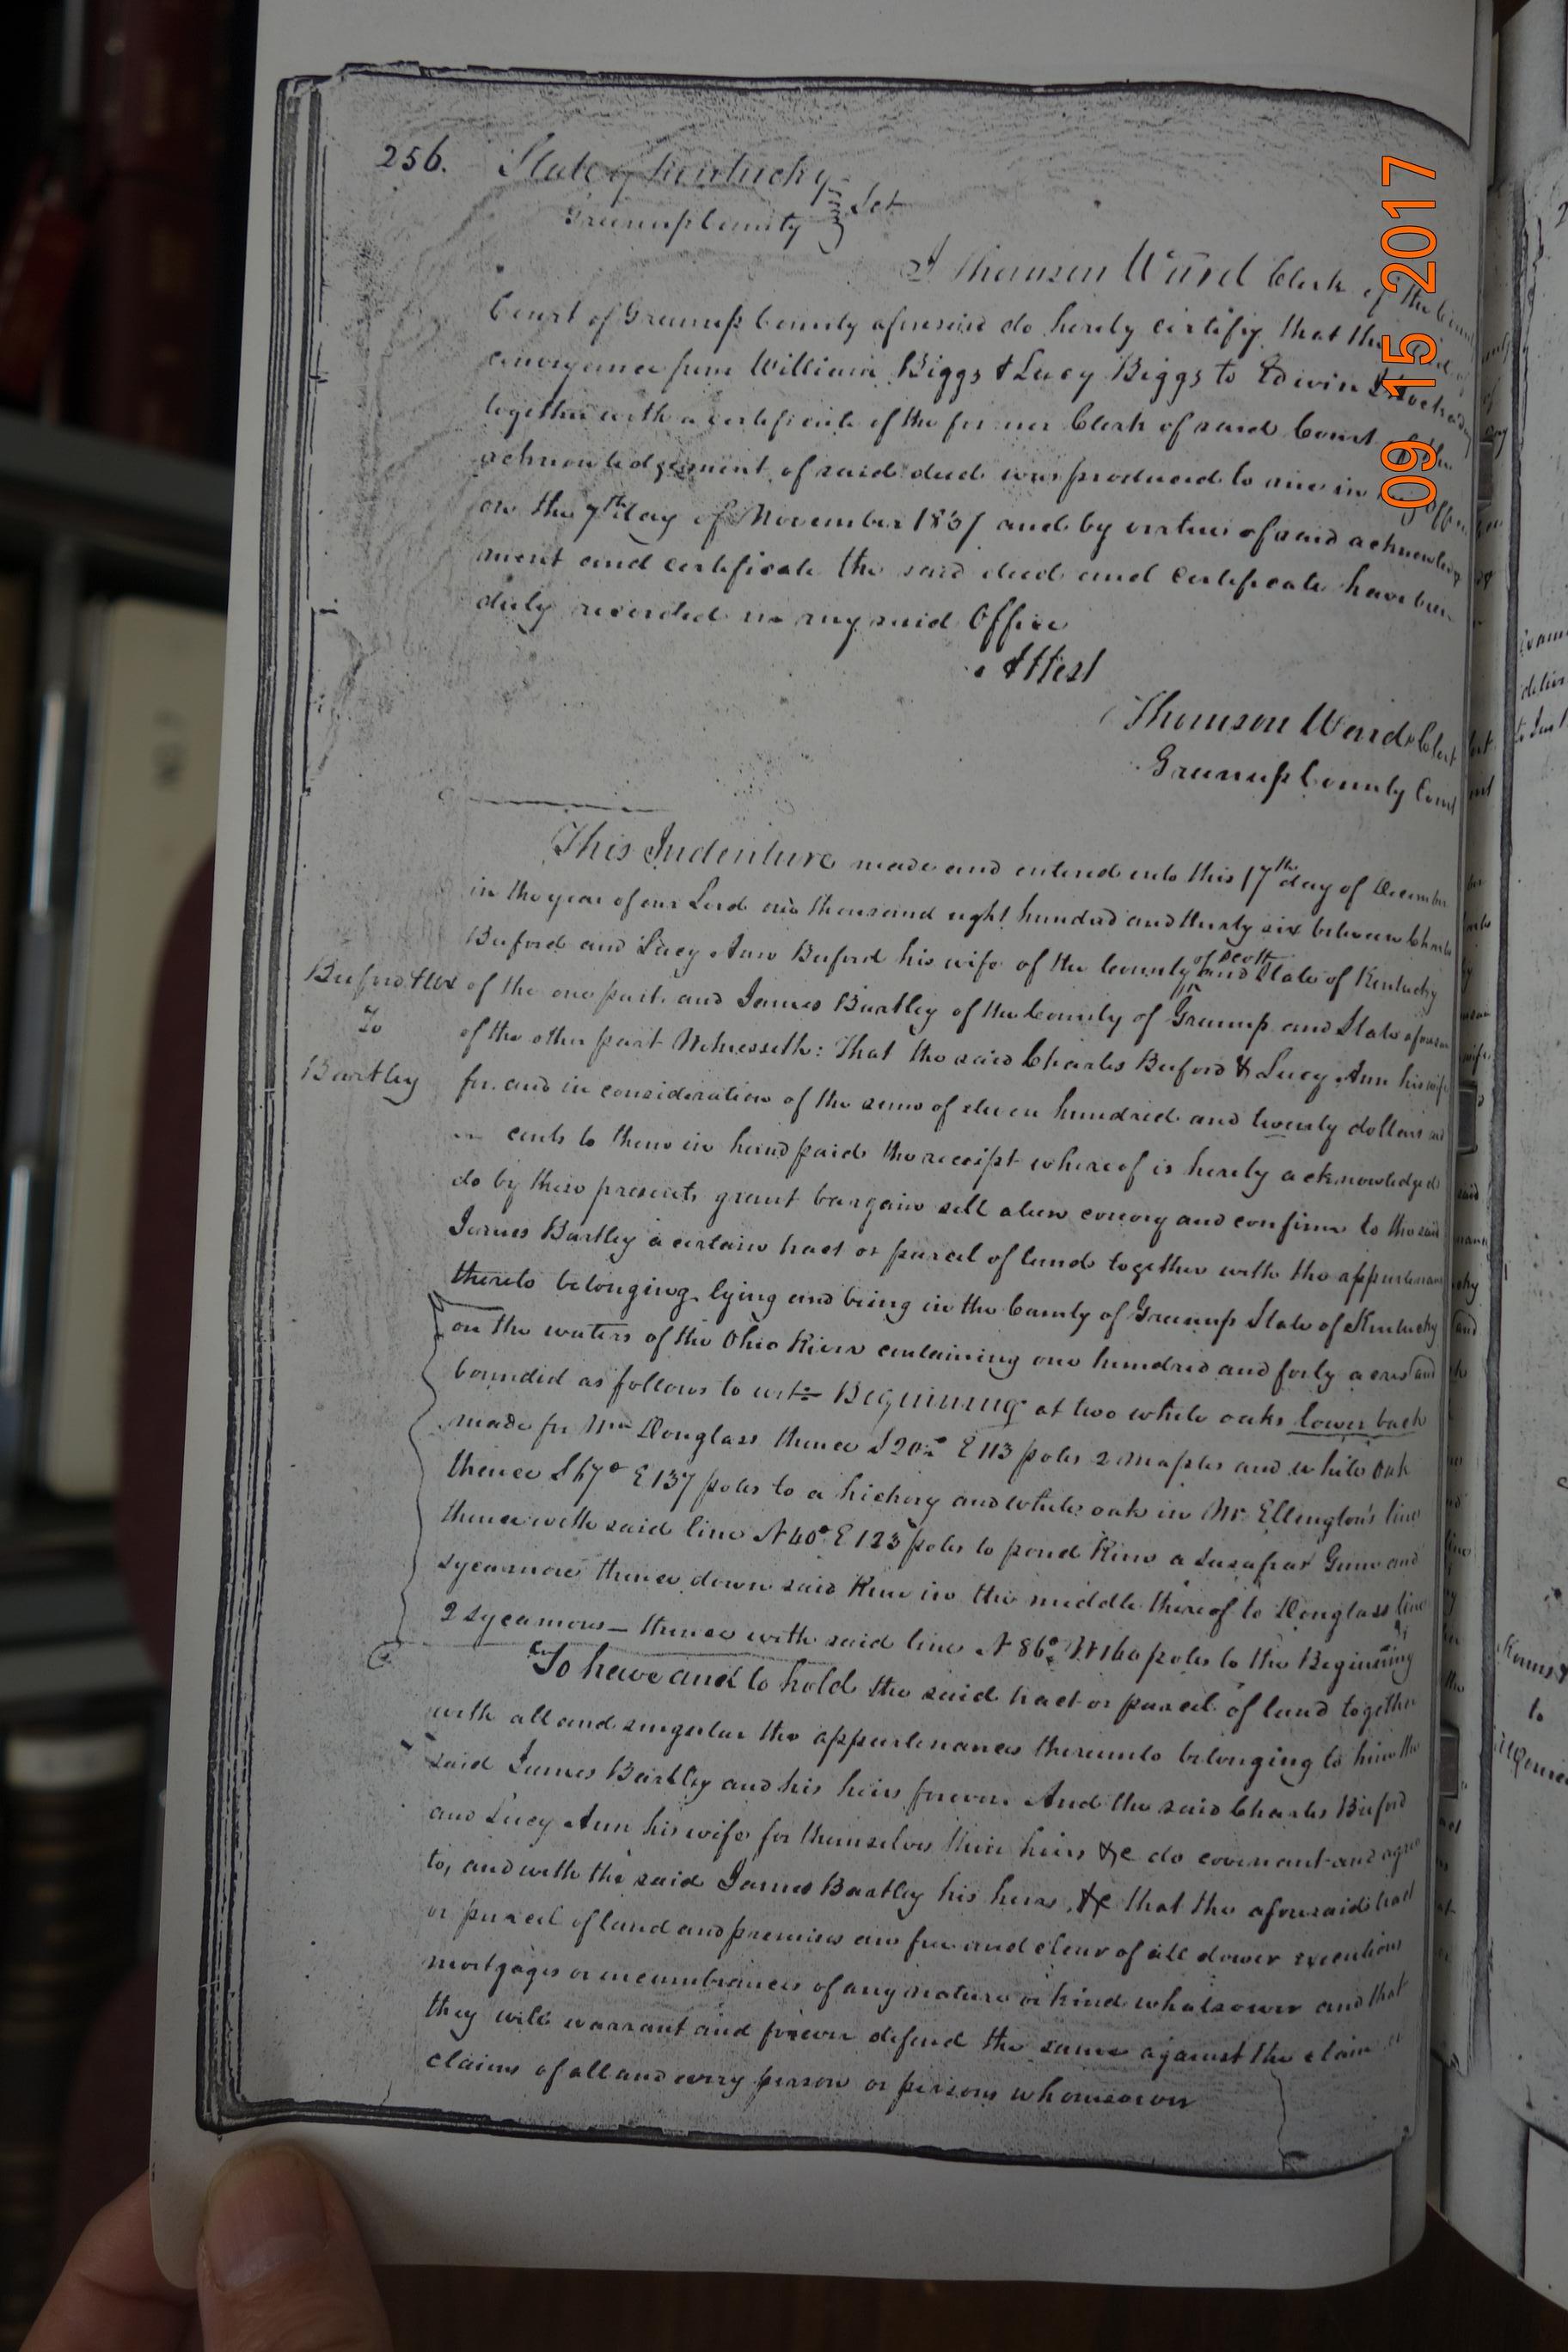 256. State of Kentucky
Greenup County } Sct
I Thomson Ward Clerk of the
Court of Greenup County aforesaid do hereby certify that the
conveyance from William Biggs & Lucy Biggs to Edwin
together with a certificate of the former Clerk of said Court
acknowledgement of said deed was produced to me in office
on the 7th day of November 1837 and by virtue of said acknowledg
ment and certificate the said deed and certificate have been
duly recorded in my said Office
Attest
Thomson Ward Clerk
Greenup County Court
This Indenture made and entered into this 17th day of December
in the year of our Lord one thousand eight hundred and thirty six between Charles
Buford and Lucy Ann Buford his wife of the County of Scott and State of Kentucky
Buford & Ux of the one part and James Bartley of the County of Greenup and State aforesaid
To of the other part Witnesseth: That the said Charles Buford & Lucy Ann his wife
Bartley for and in consideration of the sum of eleven hundred and twenty dollars and
cents to them in hand paid the receipt whereof is hereby acknowledged
do by these presents grant bargain sell alien convey and confirm to the said
James Bartley a certain tract or parcel of land together with the appurtenances
thereto belonging lying and being in the County of Greenup State of Kentucky
on the waters of the Ohio River containing one hundred and forty acres and
bounded as follows to wit:- Beginning at two white oaks lower back
made for Wm Douglass thence S 20° E 113 poles 2 maples and white oak
thence S 67° E 137 poles to a hickory and white oak in Mr. Ellington's line
thence with said line N 40° E 123 poles to pond Run a Sasafras Gum and
sycamore thence down said Run in the middle thereof to Douglass line
2 sycamores - thence with said line N 86° W 160 poles to the Begining
To have and to hold the said tract or parcel of land together
with all and singular the appurtenances thereunto belonging to him the
said James Bartley and his heirs forever. And the said Charles Buford
and Lucy Ann his wife for themselves their heirs &c do covenant and agree
to, and with the said James Bartley his heirs &c that the aforesaid tract
or parcel of land and premises are free and clear of all dower executions
mortgages or incumbrances of any nature or kind whatsoever and that
they will warrant and forever defend the same against the claim or
claims of all and every person or persons whomsoever
09 15 2017